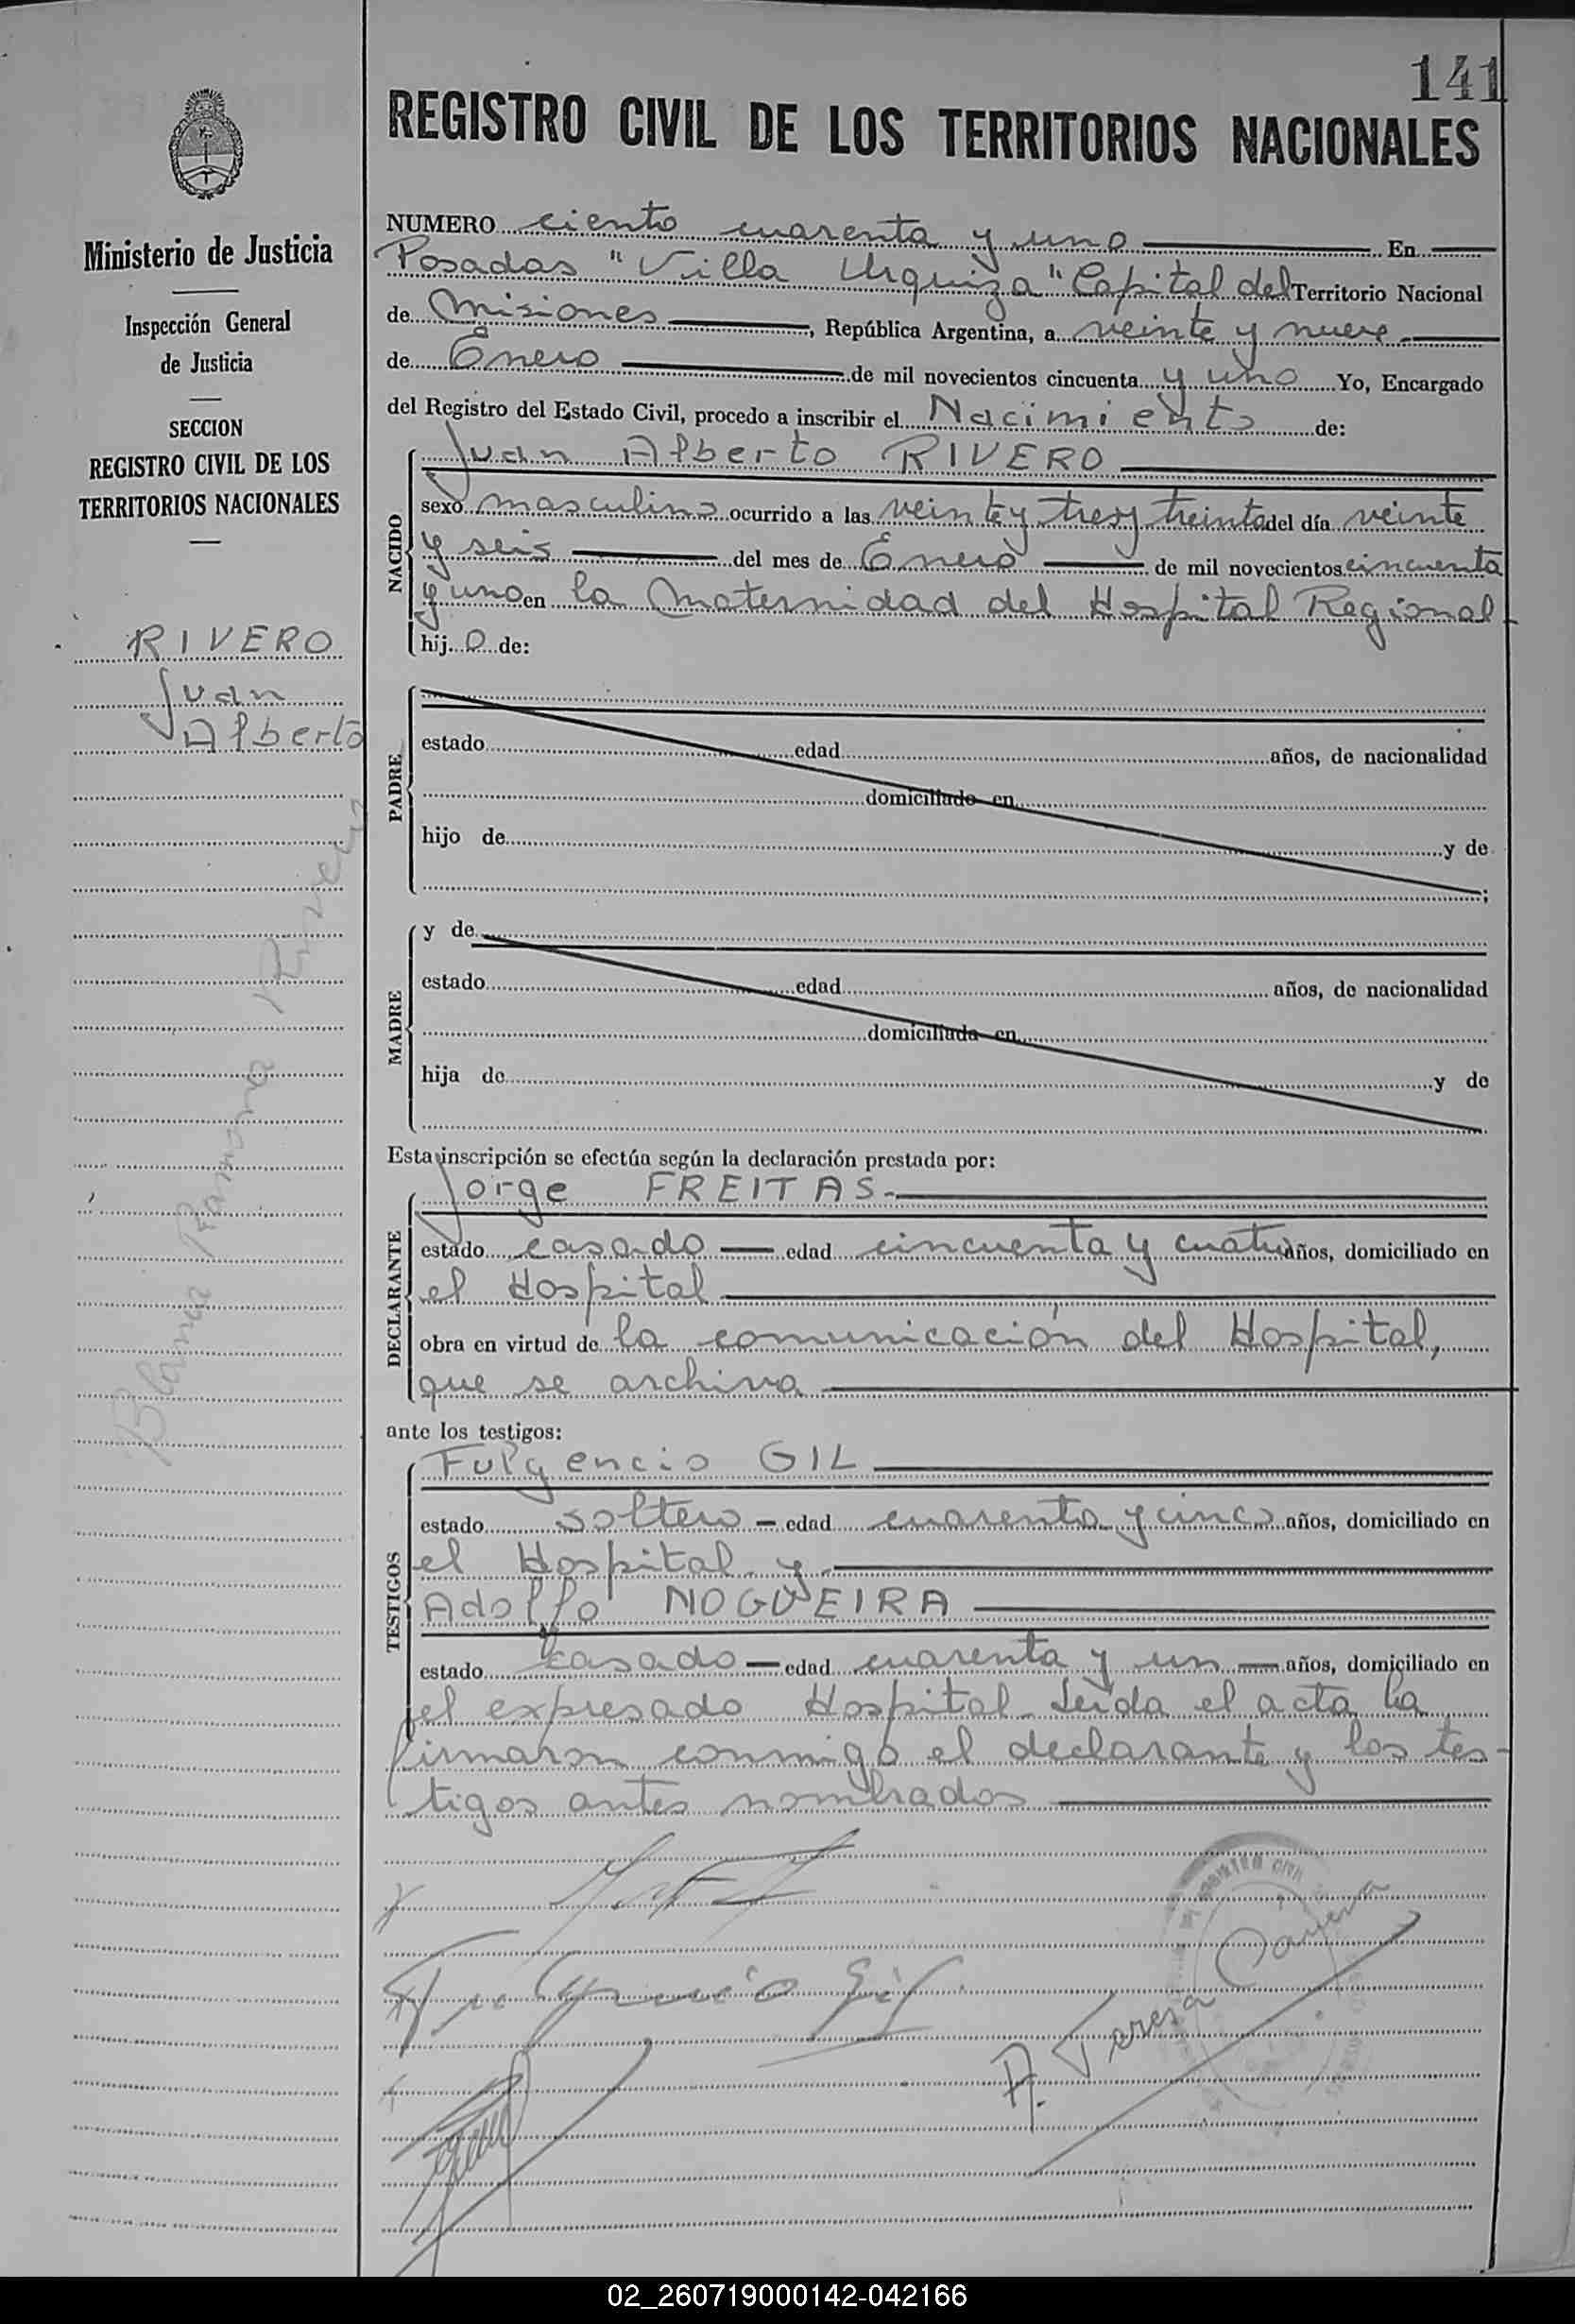 141
REGISTRO CIVIL DE LOS TERRITORIOS NACIONALES
Ministerio de Justicia
Inspección General
de Justicia
SECCION
REGISTRO CIVIL DE LOS
TERRITORIOS NACIONALES
RIVERO
Juan
Alberto
Blanca Ramona
NUMERO ciento cuarenta y uno En
Posadas "Villa Urquiza" Capital del Territorio Nacional
de Misiones, República Argentina, a veinte y nueve
de Enero de mil novecientos cincuenta y uno Yo, Encargado
del Registro del Estado Civil, procedo a inscribir el Nacimiento de:
NACIDO
Juan Alberto RIVERO
sexo masculino ocurrido a las veinte y tres y treinta del día veinte
y seis del mes de Enero de mil novecientos cincuenta
y uno en la Maternidad del Hospital Regional
hijo de:
PADRE
estado edad años, de nacionalidad
domiciliado en
hijo de y de
;
MADRE
y de
estado edad años, de nacionalidad
domiciliada en
hija de y de
Esta inscripción se efectúa según la declaración prestada por:
DECLARANTE
Jorge FREITAS.-
estado casado edad cincuenta y cuatro años, domiciliado en
el Hospital
obra en virtud de la comunicación del Hospital,
que se archiva
ante los testigos:
TESTIGOS
Fulgencio GIL
estado soltero - edad cuarenta y cinco años, domiciliado en
el Hospital y
Adolfo NOGUEIRA
estado casado - edad cuarenta y un años, domiciliado en
el expresado Hospital. Leida el acta la
firmaron conmigo el declarante y los tes-
tigos antes nombrados
Fulgencio Gil
A. Teresa
02_260719000142-042166